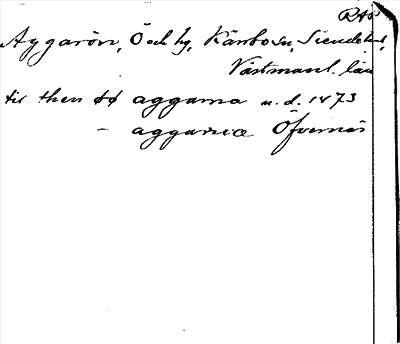 RAP
Aggarön, Ö och by, Kärrbo sn, Siende hd,
Västmanl. län
til then øø aggarna u. d. 1873
– aggarnæ Öfvernäs